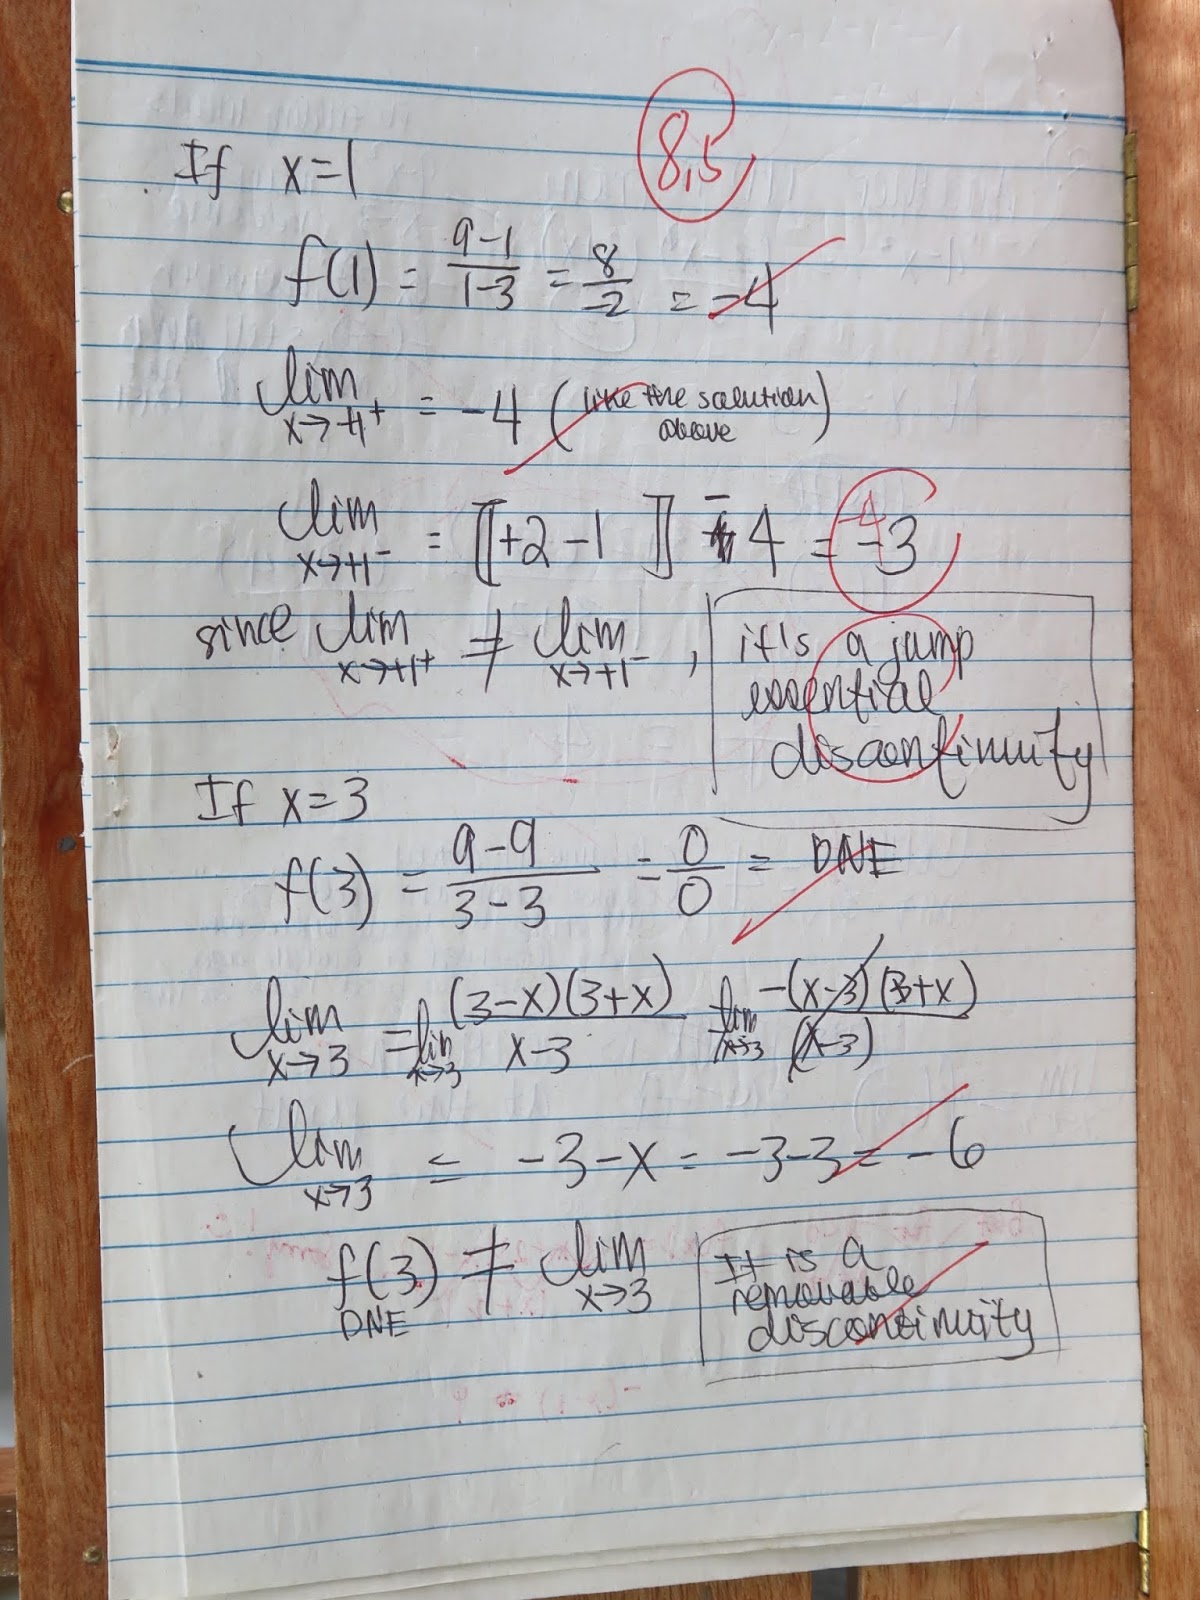 8,5
If x=1
f(1) = (9-1)/(1-3) = 8/-2 = -4
lim x→+1⁺ = -4 (like the solution above)
lim x→+1⁻ = ⟦+2-1⟧ -4 = -3 -4
since lim x→+1⁺ ≠ lim x→+1⁻,
it's a jump
essential
discontinuity
If x=3
f(3) = (9-9)/(3-3) = 0/0 = DNE
lim x→3 = lim x→3 (3-x)(3+x)/(x-3) lim x→3 -(x-3)(3+x)/(x-3)
lim x→3 = -3-x = -3-3 = -6
f(3) ≠ lim x→3
DNE
It is a
removable
discontinuity